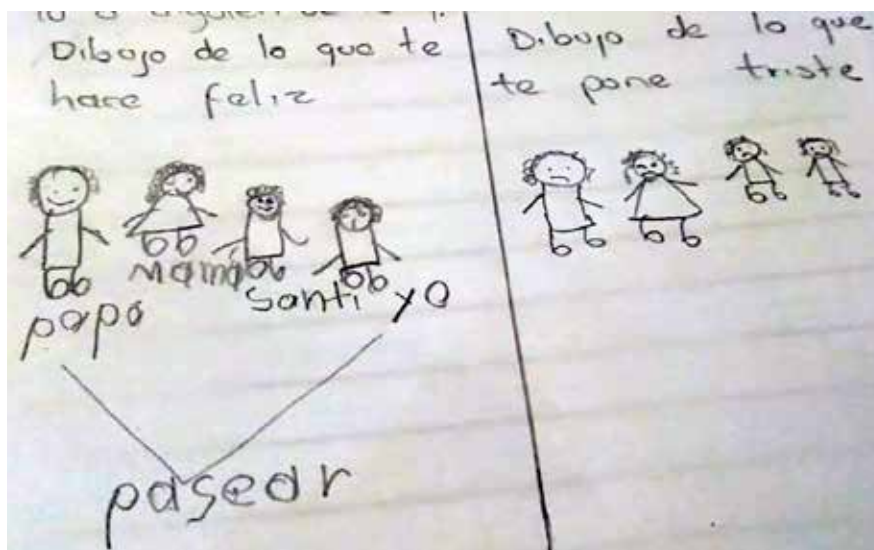 Dibujo de lo que te
hace feliz
papá
mamá
Santi
yo
pasear
Dibujo de lo que
te pone triste